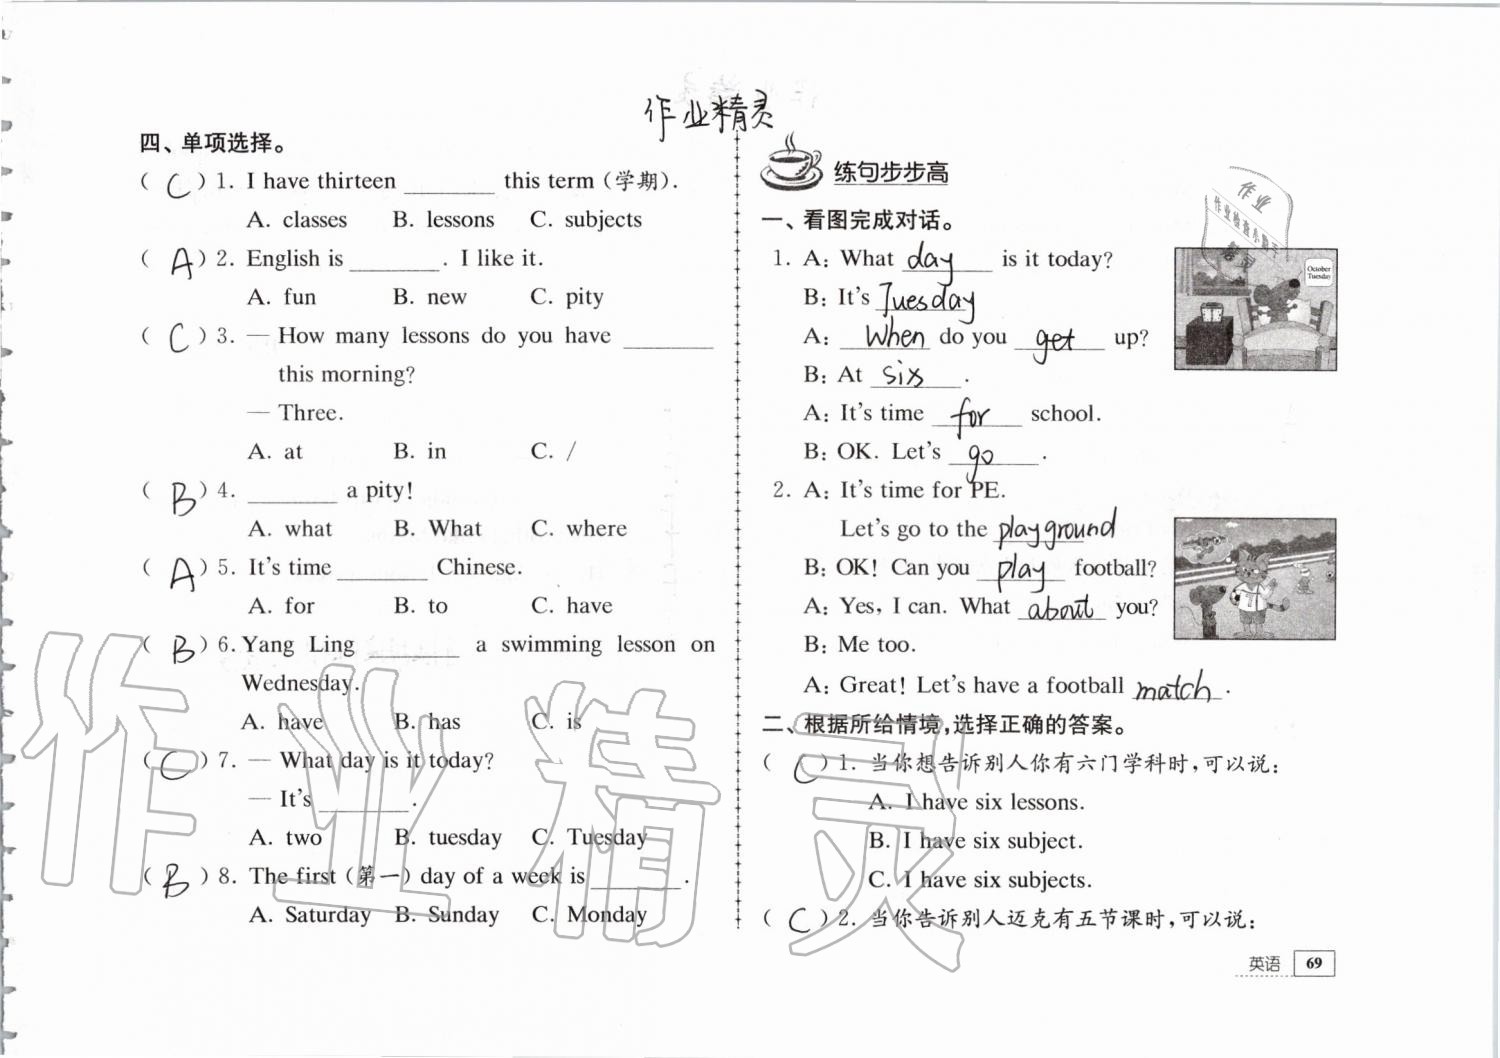 作业精灵
四、单项选择。
( C ) 1. I have thirteen ________ this term (学期).
A. classes B. lessons C. subjects
( A ) 2. English is ________. I like it.
A. fun B. new C. pity
( C ) 3. — How many lessons do you have ________
this morning?
— Three.
A. at B. in C. /
( B ) 4. ________ a pity!
A. what B. What C. where
( A ) 5. It's time ________ Chinese.
A. for B. to C. have
( B ) 6. Yang Ling ________ a swimming lesson on
Wednesday.
A. have B. has C. is
( C ) 7. — What day is it today?
— It's ________.
A. two B. tuesday C. Tuesday
( B ) 8. The first (第一) day of a week is ________.
A. Saturday B. Sunday C. Monday
练句步步高
一、看图完成对话。
1. A: What day is it today?
B: It's Tuesday
A: When do you get up?
B: At six.
A: It's time for school.
B: OK. Let's go.
October
Tuesday
2. A: It's time for PE.
Let's go to the playground
B: OK! Can you play football?
A: Yes, I can. What about you?
B: Me too.
A: Great! Let's have a football match.
二、根据所给情境,选择正确的答案。
( C ) 1. 当你想告诉别人你有六门学科时,可以说:
A. I have six lessons.
B. I have six subject.
C. I have six subjects.
( C ) 2. 当你告诉别人迈克有五节课时,可以说:
英语 69
作业
作业检查小助手
精灵
作业精灵